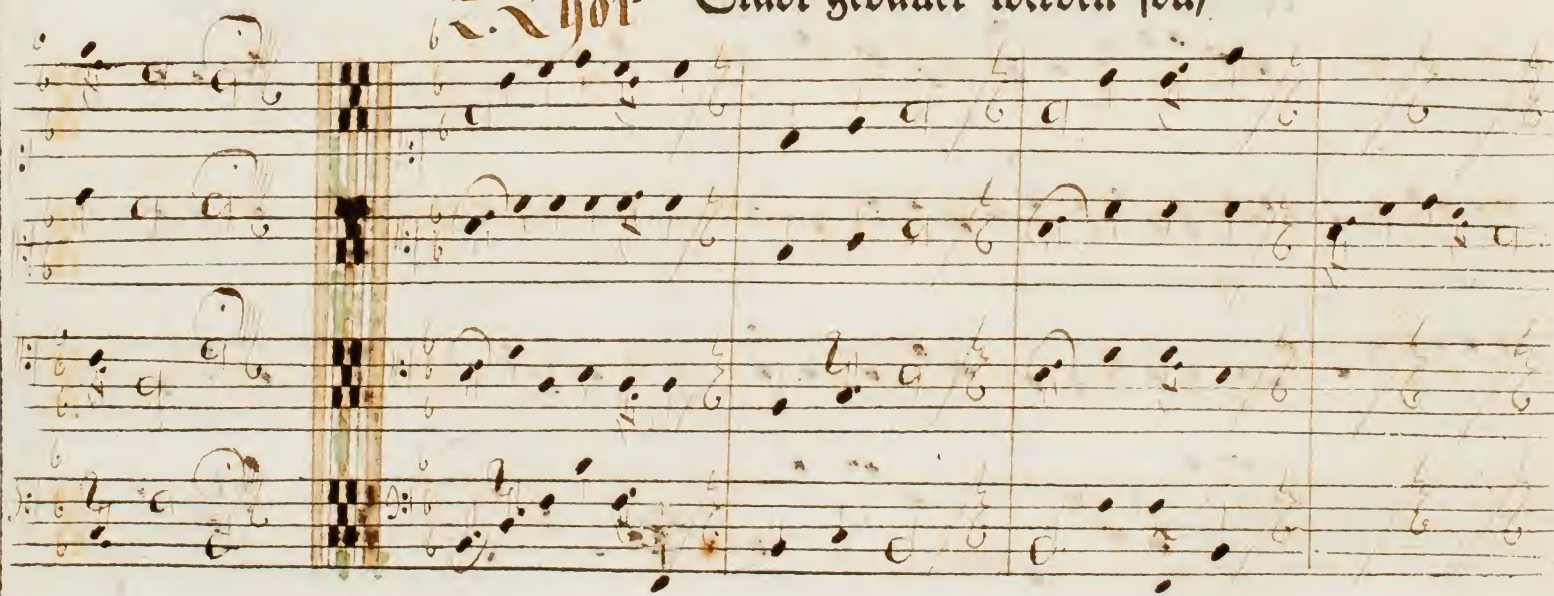 2. Chor Stadt gebauet werden soll/